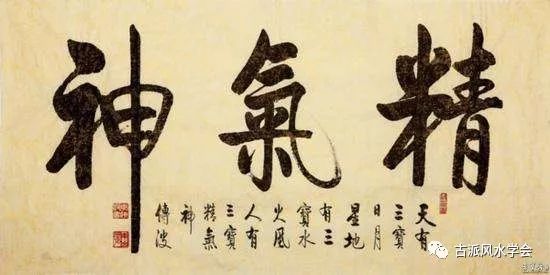 精氣神
天有
三寶
日月
星地
有三
寶水
火風
人有
三寶
精氣
神
傳波
古派风水学会